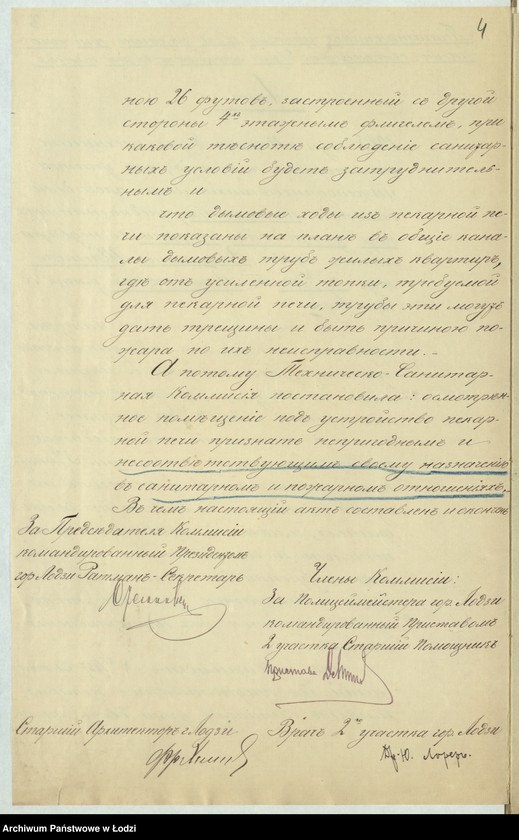 4
ною 26 футовъ, застроенный съ другой
стороны 4хъ этажнымъ флигелемъ, при
каковой тѣснотѣ соблюденіе санитар-
ныхъ условій будетъ затруднитель-
нымъ и
что дымовые ходы изъ пекарной пе-
чи показаны на планѣ въ общіе кана-
лы дымовыхъ трубъ жилыхъ квартиръ,
гдѣ отъ усиленной топки, требуемой
для пекарной печи, трубы эти могутъ
дать трещины и быть причиною по-
жара по ихъ неисправности. –
А потому Техническо-Санитар-
ная Коммисія постановила: осмотрѣн-
ное помѣщеніе подъ устройство пекар-
ной печи признать непригоднымъ и
несоотвѣтствующимъ своему назначенію
въ санитарномъ и пожарномъ отношеніяхъ.
Въ чемъ настоящій актъ составленъ и
За Предсѣдателя Коммисіи
командированный Президентомъ
гор. Лодзи Ратманъ-Секретарь
Члены Коммисіи:
За Полицеймейстера гор. Лодзи
командированный Приставомъ
2 участка Старшій Помощникъ
Пристава
Старшій Архитекторъ г. Лодзи
Врачъ 2го участка гор. Лодзи
Др. Ю. Лоренцъ.
Archiwum Państwowe w Łodzi